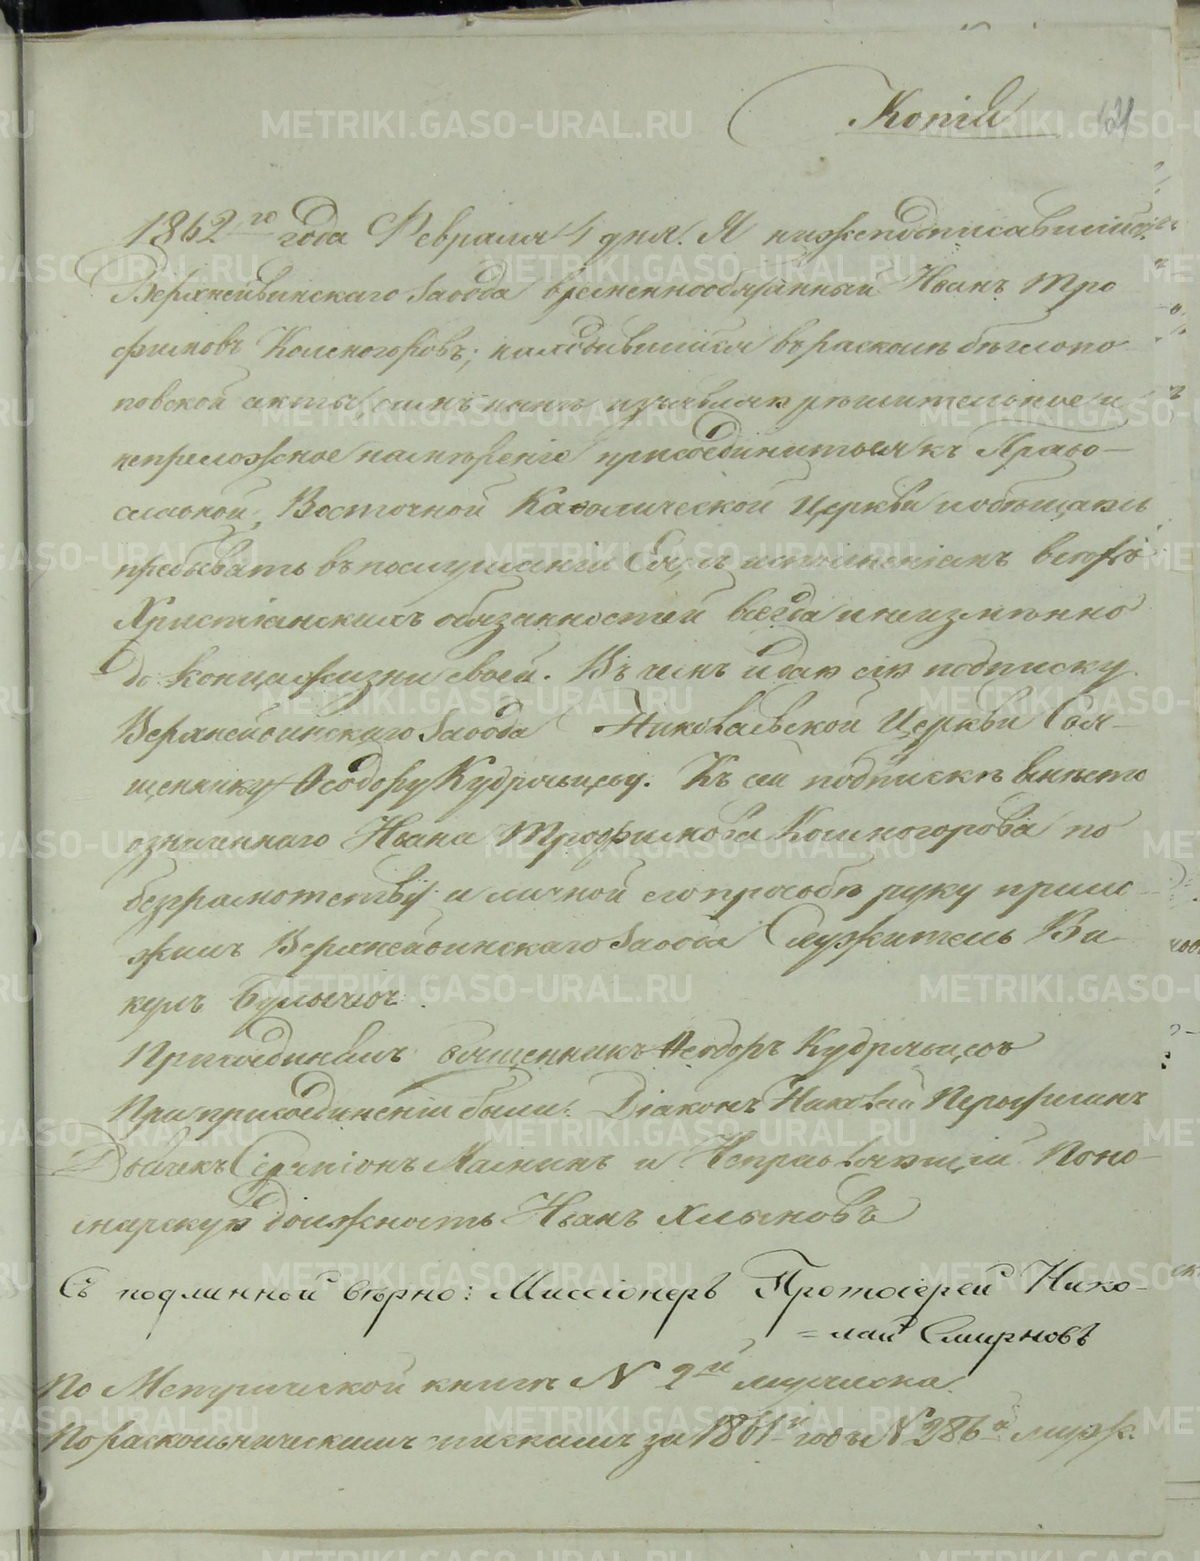 Копія 64
1862го года Февраля 4 дня. Я нижеподписавшійся
Верхнейвинскаго Завода временнообязанный Иванъ Тро
фимовъ Колногоровъ; находившійся въ расколѣ бѣглопо
повской секты, симъ изъявляю рѣшительное и
непреложное намѣреніе присоединиться къ Право-
славной, Восточной Каѳолической Церкви и обѣщаюсь
пребывать въ послушаніи Ея, съ исполненіемъ всѣхъ
Христіанскихъ обязанностей всегда и неизмѣнно
до конца жизни своей. Въ чемъ и даю сію подписку
Верхнейвинскаго Завода Николаевской Церкви Свя-
щеннику Ѳеодору Кудрявцеву. Къ сей подпискѣ вмѣсто
означеннаго Ивана Трофимова Колногорова по
безграмотству и личной его просьбѣ руку прило
жилъ Верхнейвинскаго Завода Служитель Ви
кулъ
Присоединилъ священникъ Ѳеодоръ Кудрявцевъ
При присоединеніи были: Діаконъ Николай
Дьячекъ Серапіонъ и Исправляющій Поно-
марскую должность Иванъ Хлыновъ
Съ подлинной вѣрно: Миссіонеръ Протоіерей Нико-
=лай Смирновъ
По Метрической книгѣ № 2й мужеска
По раскольническимъ спискамъ за 1861й годъ № 286й муж.
METRIKI.GASO-URAL.RU